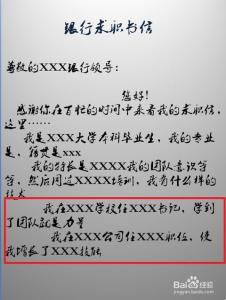 银行求职书信
尊敬的XXX银行领导:
您好!
感谢你在百忙的时间中来看我的求职信,
这里……
我是XXX大学本科毕业生,我的专业
是,籍贯是xxx
我的特长是XXXX我的团队意识等
等,然后同过XXXX培训,我有什么样的
技术
我在XXX学校任XXX书记,学到
了团队就是力量
我在XXX公司任XXX职位,使
我增长了XXX技能
Baidu经验
jingyan.baidu.com